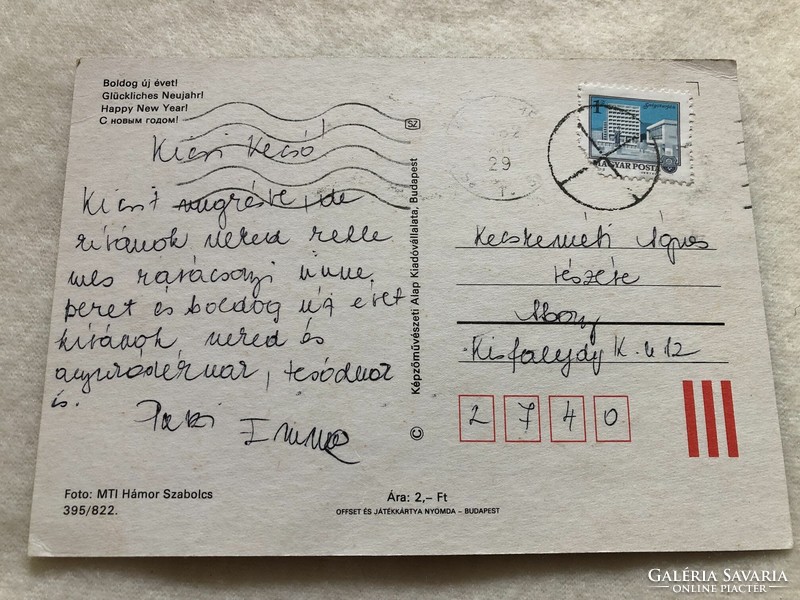 Boldog új évet!
Glückliches Neujahr!
Happy New Year!
С новым годом!
SZ
29
1 Ft
MAGYAR POSTA
Kicsi Kecsó!
Kicsit megkésve, de
kívánok neked kelle
mes karácsonyi ünne
peket és boldog új évet
kívánok neked és
anyukádéknak, tesódnak
is.
Paksi Imre
Képzőművészeti Alap Kiadóvállalata, Budapest
©
Kecskeméti Ágnes
részére
Abony
Kisfaludy K. u 12
2740
Foto: MTI Hámor Szabolcs
395/822.
Ára: 2,– Ft
OFFSET ÉS JÁTÉKKÁRTYA NYOMDA – BUDAPEST
GALÉRIA SAVARIA
ONLINE PIACTÉR